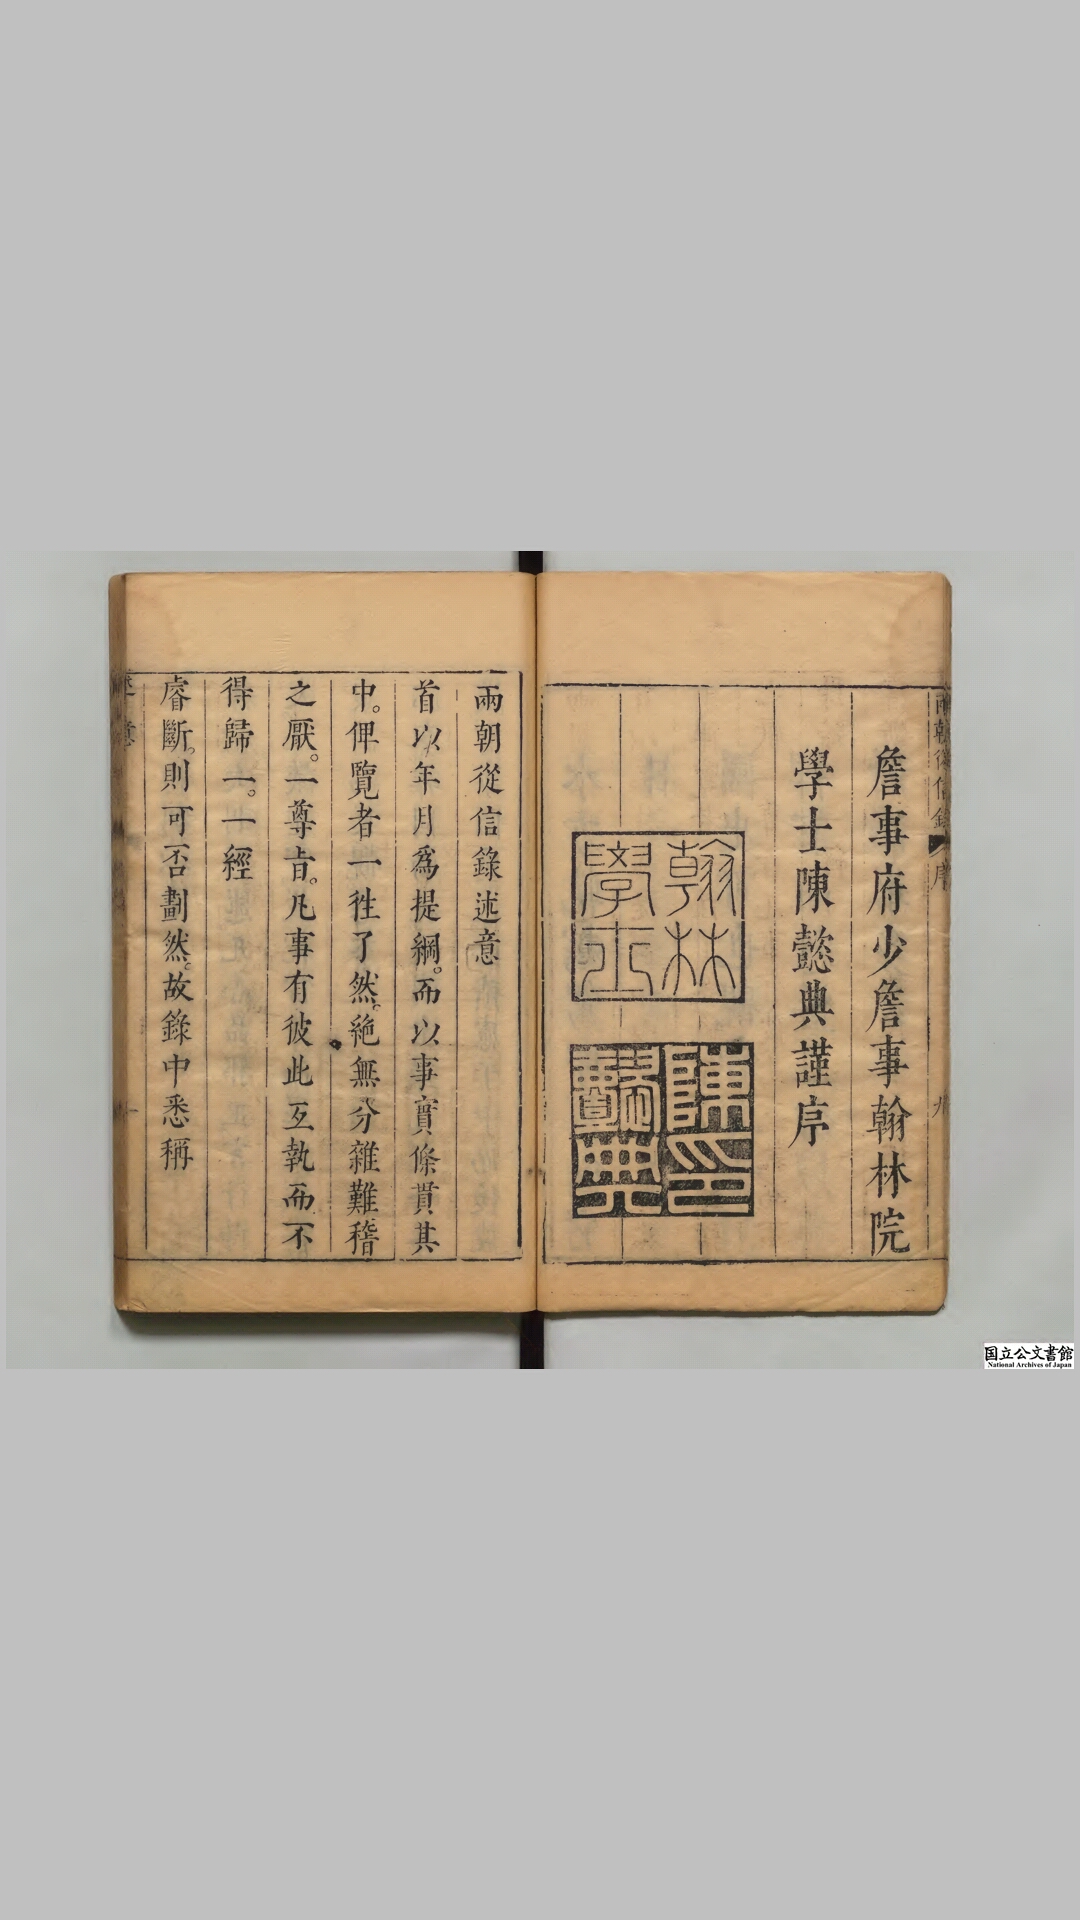 兩朝從信錄 序 九
詹事府少詹事翰林院
學士陳懿典謹序
翰林學士
陳懿典印
兩朝從信錄述意
首以年月爲提綱。而以事實條貫其
中。俾覽者一徃了然。絶無分雜難稽
之厭。一尊旨。凡事有彼此互執而不
得歸一。一經
睿斷。則可否劃然。故錄中悉稱
述意 一
国立公文書館
National Archives of Japan